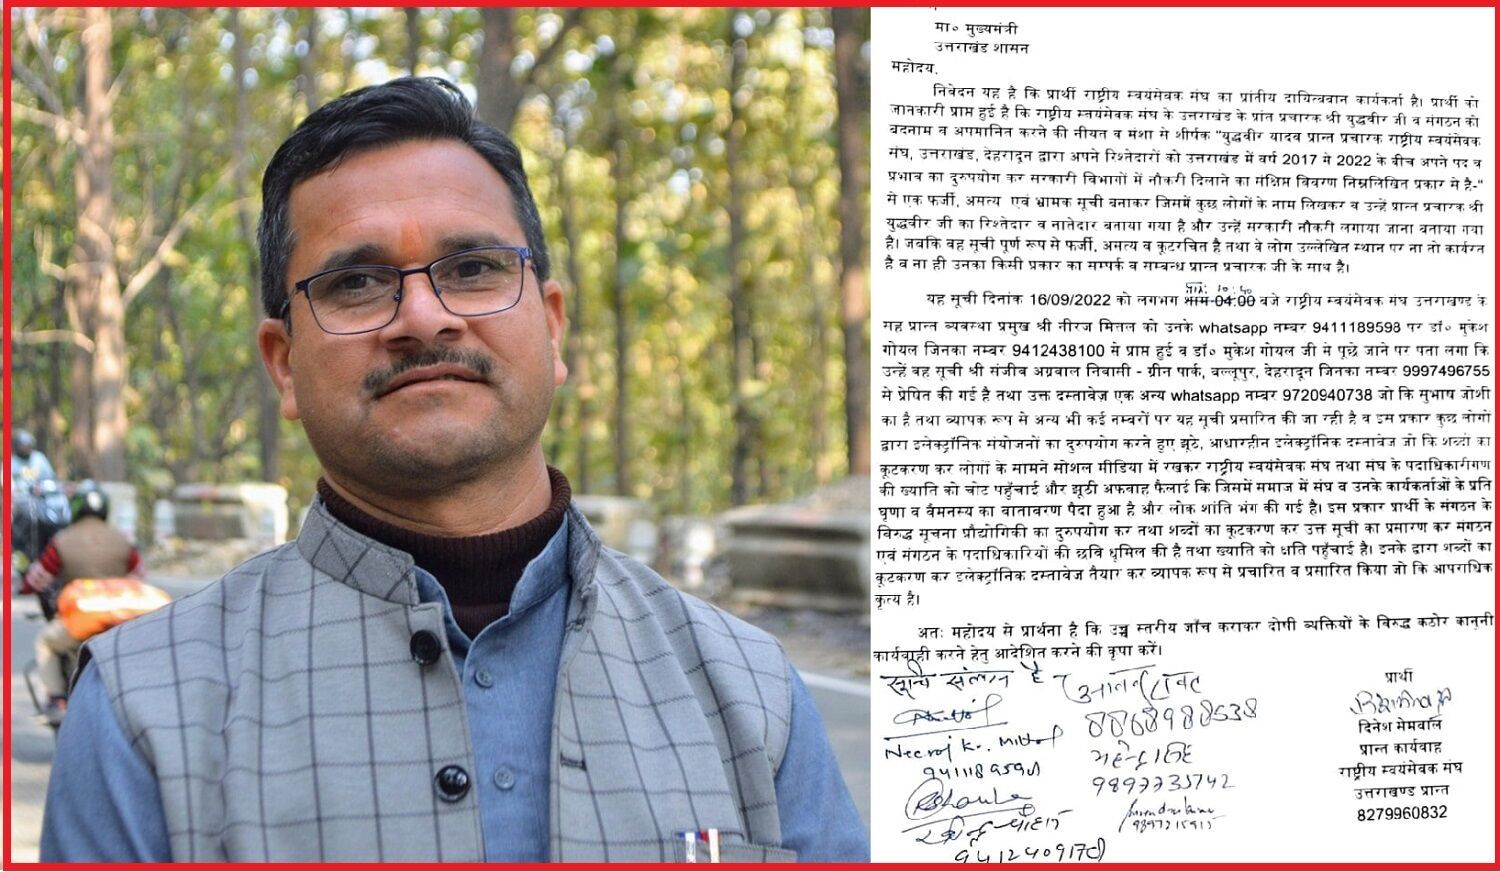 मा० मुख्यमंत्री
उत्तराखंड शासन
महोदय.
निवेदन यह है कि प्रार्थी राष्ट्रीय स्वयंसेवक संघ का प्रांतीय दायित्ववान कार्यकर्ता है। प्रार्थी को
जानकारी प्राप्त हुई है कि राष्ट्रीय स्वयंसेवक संघ के उत्तराखंड के प्रांत प्रचारक श्री युद्धवीर जी व संगठन को
बदनाम व अपमानित करने की नीयत व मंशा से शीर्षक "युद्धवीर यादव प्रान्त प्रचारक राष्ट्रीय स्वयंसेवक
संघ, उत्तराखंड, देहरादून द्वारा अपने रिश्तेदारों को उत्तराखंड में वर्ष 2017 से 2022 के बीच अपने पद व
प्रभाव का दुरुपयोग कर सरकारी विभागों में नौकरी दिलाने का संक्षिप्त विवरण निम्नलिखित प्रकार से है-"
से एक फर्जी, असत्य एवं भ्रामक सूची बनाकर जिसमें कुछ लोगों के नाम लिखकर व उन्हें प्रान्त प्रचारक श्री
युद्धवीर जी का रिश्तेदार व नातेदार बताया गया है और उन्हें सरकारी नौकरी लगाया जाना बताया गया
है। जबकि वह सूची पूर्ण रूप से फर्जी, असत्य व कूटरचित है तथा वे लोग उल्लेखित स्थान पर ना तो कार्यरत
है व ना ही उनका किसी प्रकार का सम्पर्क व सम्बन्ध प्रान्त प्रचारक जी के साथ है।
10:40
यह सूची दिनांक 16/09/2022 को लगभग शाम 04:00 बजे राष्ट्रीय स्वयंसेवक संघ उत्तराखण्ड के
सह प्रान्त व्यवस्था प्रमुख श्री नीरज मित्तल को उनके whatsapp नम्बर 9411189598 पर डॉ० मुकेश
गोयल जिनका नम्बर 9412438100 से प्राप्त हुई व डॉ० मुकेश गोयल जी से पूछे जाने पर पता लगा कि
उन्हें वह सूची श्री संजीव अग्रवाल निवासी - ग्रीन पार्क, बल्लूपुर, देहरादून जिनका नम्बर 9997496755
से प्रेषित की गई है तथा उक्त दस्तावेज़ एक अन्य whatsapp नम्बर 9720940738 जो कि सुभाष जोशी
का है तथा व्यापक रूप से अन्य भी कई नम्बरों पर यह सूची प्रसारित की जा रही है व इस प्रकार कुछ लोगो
द्वारा इलेक्ट्रॉनिक संयोजनों का दुरुपयोग करते हुए झूठे, आधारहीन इलेक्ट्रॉनिक दस्तावेज जो कि शब्दों का
कूटकरण कर लोगों के सामने सोशल मीडिया में रखकर राष्ट्रीय स्वयंसेवक संघ तथा संघ के पदाधिकारीगण
की ख्याति को चोट पहुँचाई और झूठी अफवाह फैलाई कि जिसमें समाज में संघ व उनके कार्यकर्ताओं के प्रति
घृणा व वैमनस्य का वातावरण पैदा हुआ है और लोक शांति भंग की गई है। इस प्रकार प्रार्थी के संगठन के
विरुद्ध सूचना प्रौद्योगिकी का दुरुपयोग कर तथा शब्दों का कूटकरण कर उक्त सूची का प्रसारण कर संगठन
एवं संगठन के पदाधिकारियों की छवि धूमिल की है तथा ख्याति को क्षति पहुँचाई है। इनके द्वारा शब्दों का
कूटकरण कर इलेक्ट्रॉनिक दस्तावेज तैयार कर व्यापक रूप से प्रचारित व प्रसारित किया जो कि आपराधिक
कृत्य है।
अतः महोदय से प्रार्थना है कि उच्च स्तरीय जाँच कराकर दोषी व्यक्तियों के विरुद्ध कठोर कानूनी
कार्यवाही करने हेतु आदेशित करने की कृपा करें।
सूचि संलग्न है
Neeraj Kr. Mittal
9897735742
9897215915
प्रार्थी
दिनेश सेमवाल
प्रान्त कार्यवाह
राष्ट्रीय स्वयंसेवक संघ
उत्तराखण्ड प्रान्त
8279960832